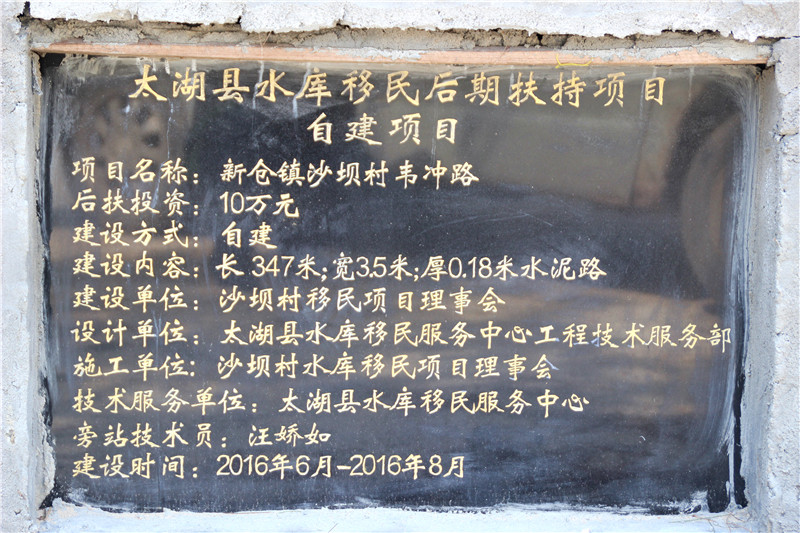 太湖县水库移民后期扶持项目
自建项目
项目名称：新仓镇沙坝村韦冲路
后扶投资：10万元
建设方式：自建
建设内容：长347米;宽3.5米;厚0.18米水泥路
建设单位：沙坝村移民项目理事会
设计单位：太湖县水库移民服务中心工程技术服务部
施工单位：沙坝村水库移民项目理事会
技术服务单位：太湖县水库移民服务中心
旁站技术员：汪娇如
建设时间：2016年6月-2016年8月